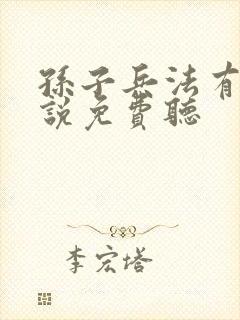 孫子兵法有
說免費聽
李宏塔